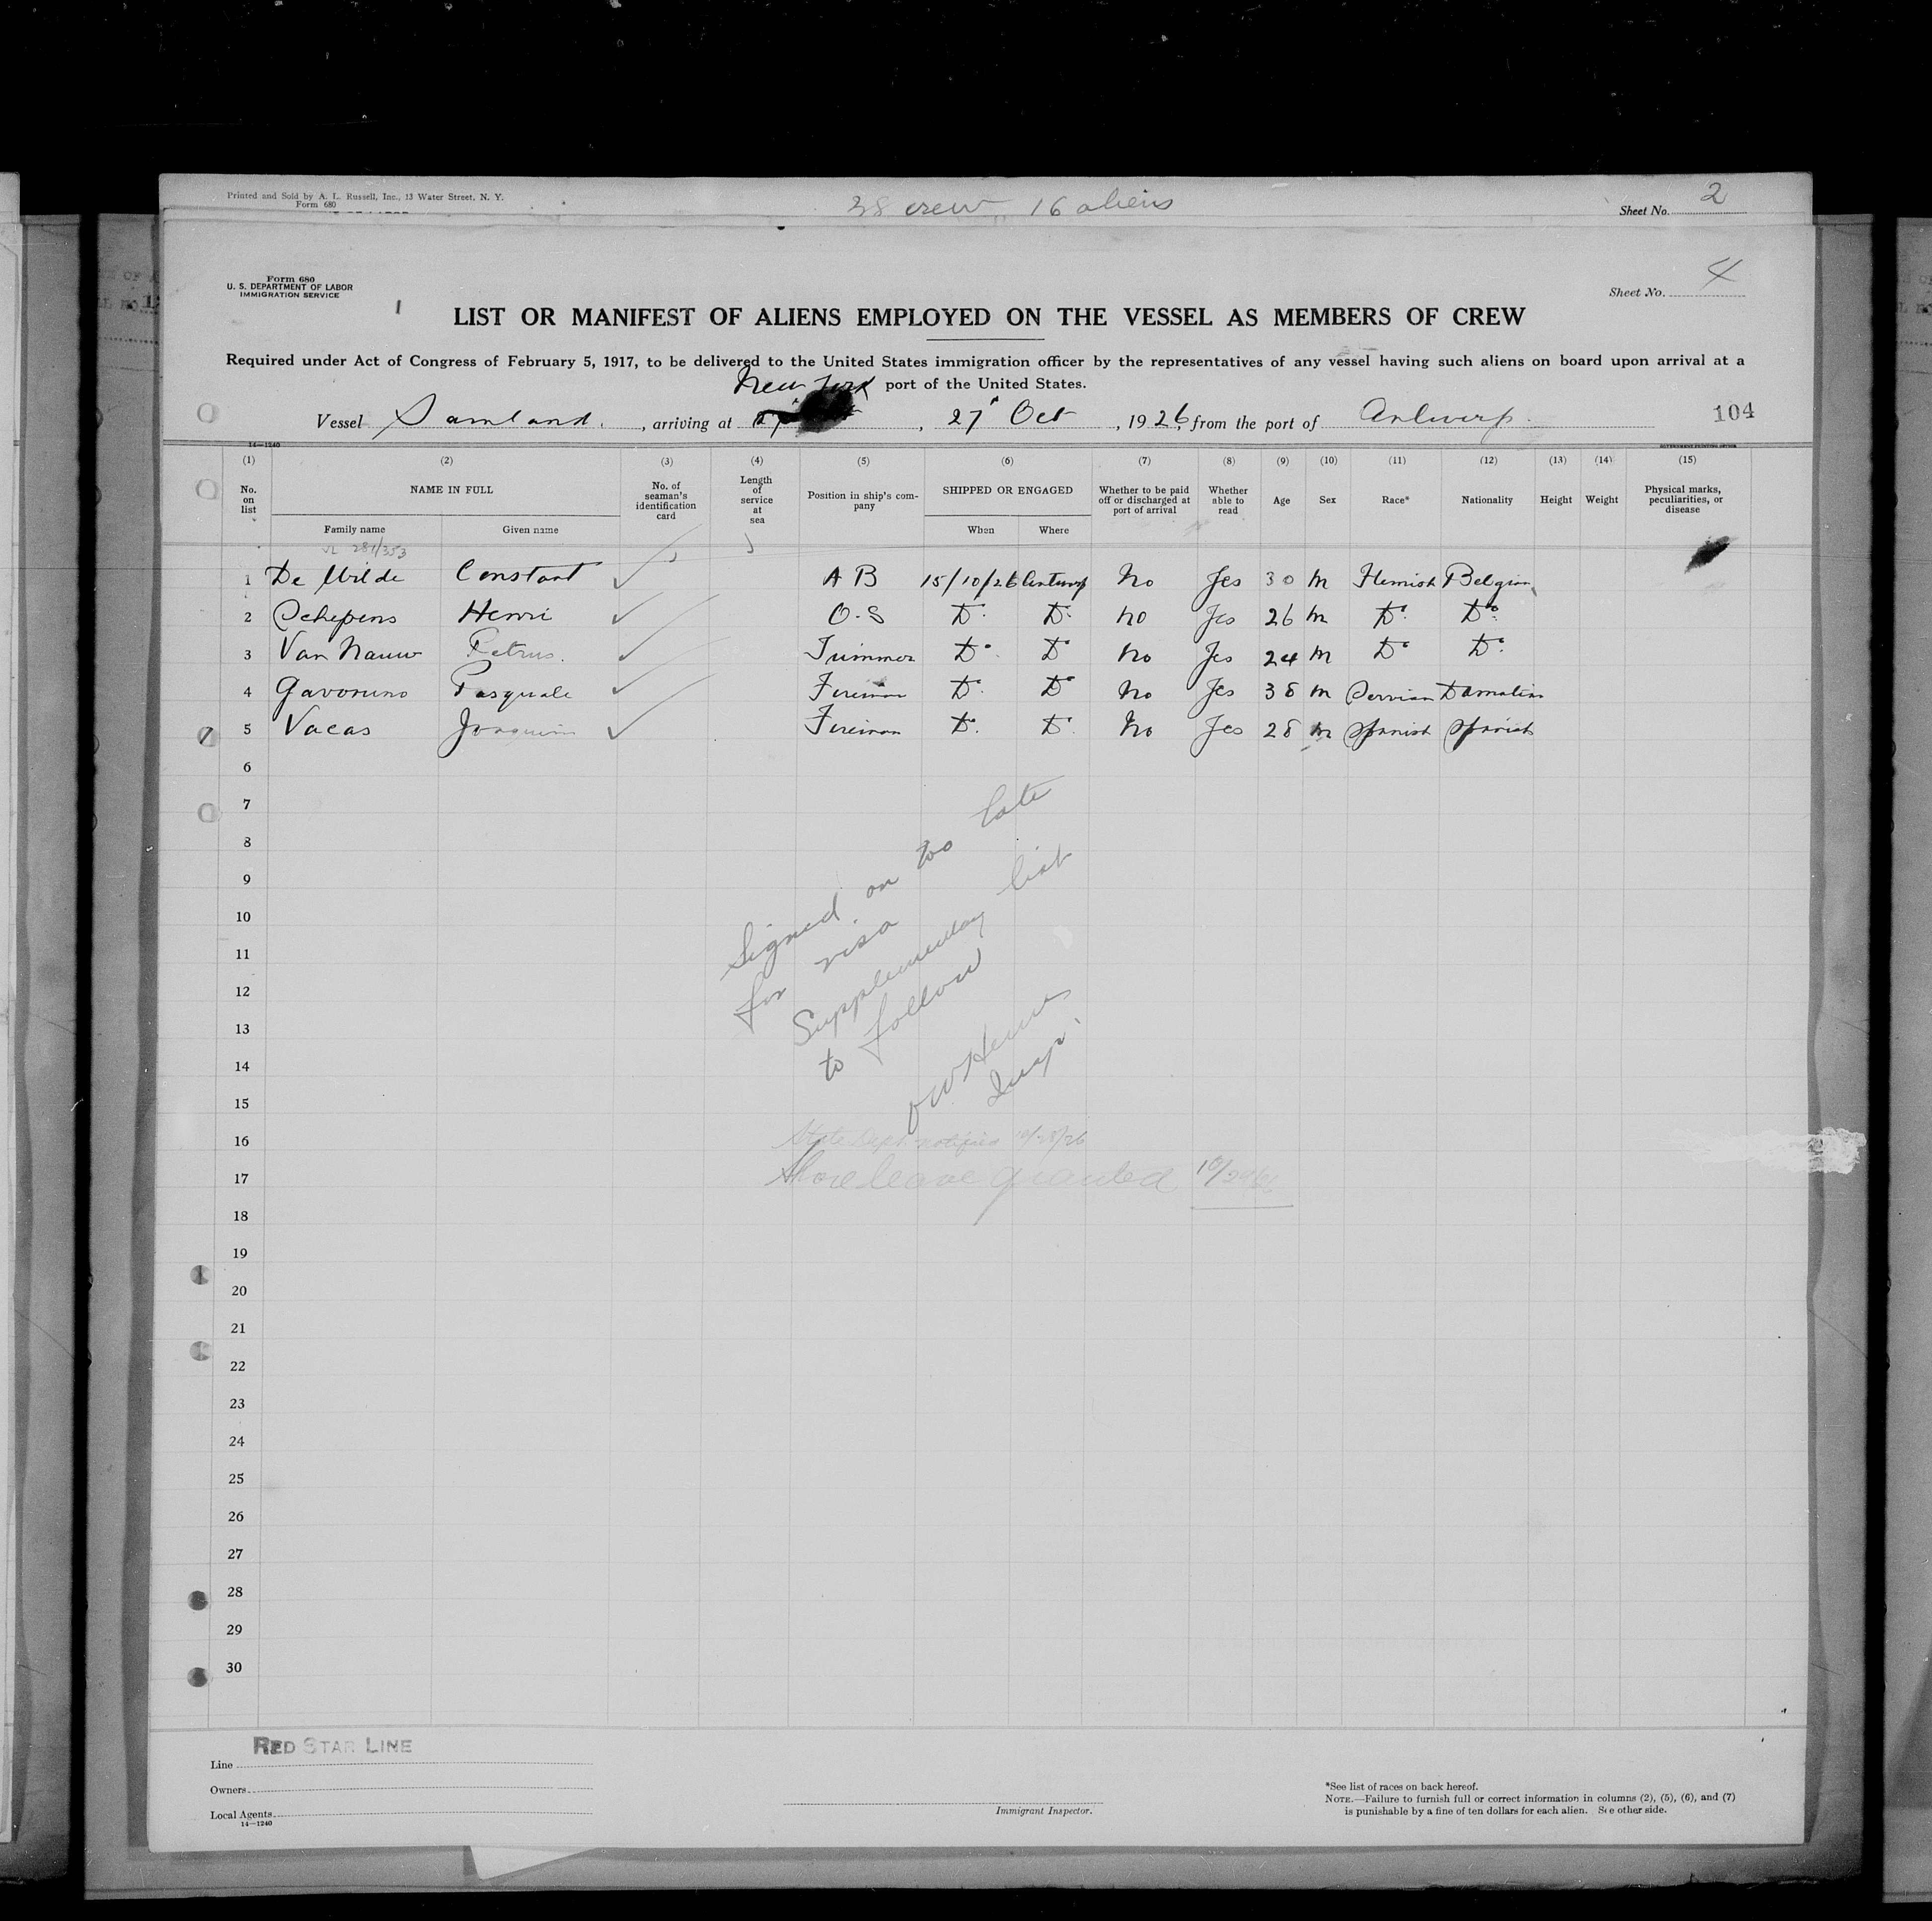 Printed and Sold by A. L. Russell, Inc., 13 Water Street, N. Y.
Form 680
38 crew 16 aliens
Sheet No. 2
Form 680
U. S. DEPARTMENT OF LABOR
IMMIGRATION SERVICE
Sheet No. 4
LIST OR MANIFEST OF ALIENS EMPLOYED ON THE VESSEL AS MEMBERS OF CREW
Required under Act of Congress of February 5, 1917, to be delivered to the United States immigration officer by the representatives of any vessel having such aliens on board upon arrival at a
port of the United States.
New York
Vessel Samland, arriving at , 27 Oct, 1926, from the port of Antwerp. 104
14—1240 GOVERNMENT PRINTING OFFICE
(1) (2) (3) (4) (5) (6) (7) (8) (9) (10) (11) (12) (13) (14) (15)
No. on list NAME IN FULL Family name Given name No. of seaman's identification card Length of service at sea Position in ship's company SHIPPED OR ENGAGED When Where Whether to be paid off or discharged at port of arrival Whether able to read Age Sex Race* Nationality Height Weight Physical marks, peculiarities, or disease
281/353
1 De Wilde Constant A B 15/10/26 Antwerp No Yes 30 M Flemish Belgian
2 Schepens Henri O.S Do. Do. No Yes 26 M Do. Do.
3 Van Nauw Petrus. Trimmer Do. Do No Yes 24 M Do Do.
4 Gavonino Pasquale Fireman Do. Do No Yes 38 M Servian Damatian
5 Vacas Joaquim Fireman Do. Do. No Yes 28 M Spanish Spanish
6
7
8
9
10
11
12
13
14
15
16
17
18
19
20
21
22
23
24
25
26
27
28
29
30
Signed on too late
for visa
Supplementary list
to follow
Insp.
State Dept. notified 10/28/26
Shore leave granted
RED STAR LINE
Line
Owners
Local Agents
14—1240
Immigrant Inspector.
*See list of races on back hereof.
NOTE.—Failure to furnish full or correct information in columns (2), (5), (6), and (7)
is punishable by a fine of ten dollars for each alien. See other side.